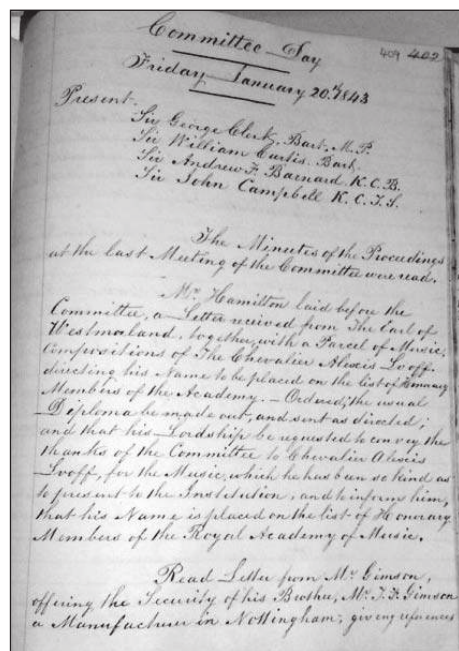 Committee Day
409 402
Friday January 20th, 1843
Present.
Sir George Clerk, Bart. M.P.
Sir William Curtis. Bart.
Sir Andrew F. Barnard. K.C.B.
Sir John Campbell K.C.T.S.
The Minutes of the Proceedings
at the last Meeting of the Committee were read.
Mr. Hamilton laid before the
Committee, a Letter received from The Earl of
Westmorland, together with a Parcel of Music,
Compositions of The Chevalier Alexis Lvoff.
directing his Name to be placed on the list of Honorary
Members of the Academy. – Ordered, the usual
Diploma be made out, and sent as directed;
and that his Lordship be requested to convey the
thanks of the Committee to Chevalier Alexis
Lvoff, for the Music, which he has been so kind as
to present to the Institution; and to inform him,
that his Name is placed on the list of Honorary
Members of the Royal Academy of Music.
Read Letter from Mr. Gimson,
offering the Security of his Brother, Mr. T. F. Gimson
a Manufacturer in Nottingham; giving references